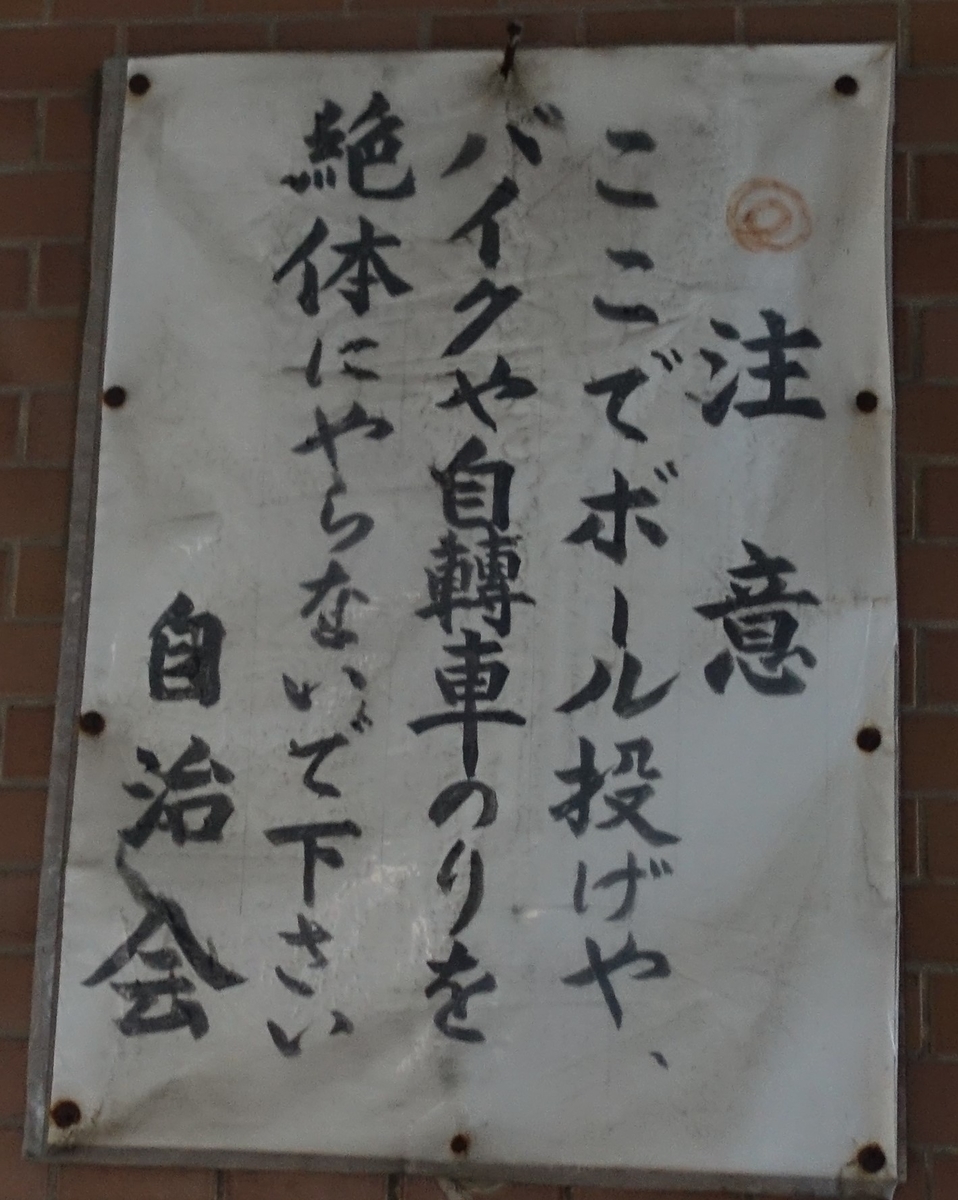 注意
ここでボール投げや、
バイクや自轉車のりを
絶体にやらないで下さい
自治会